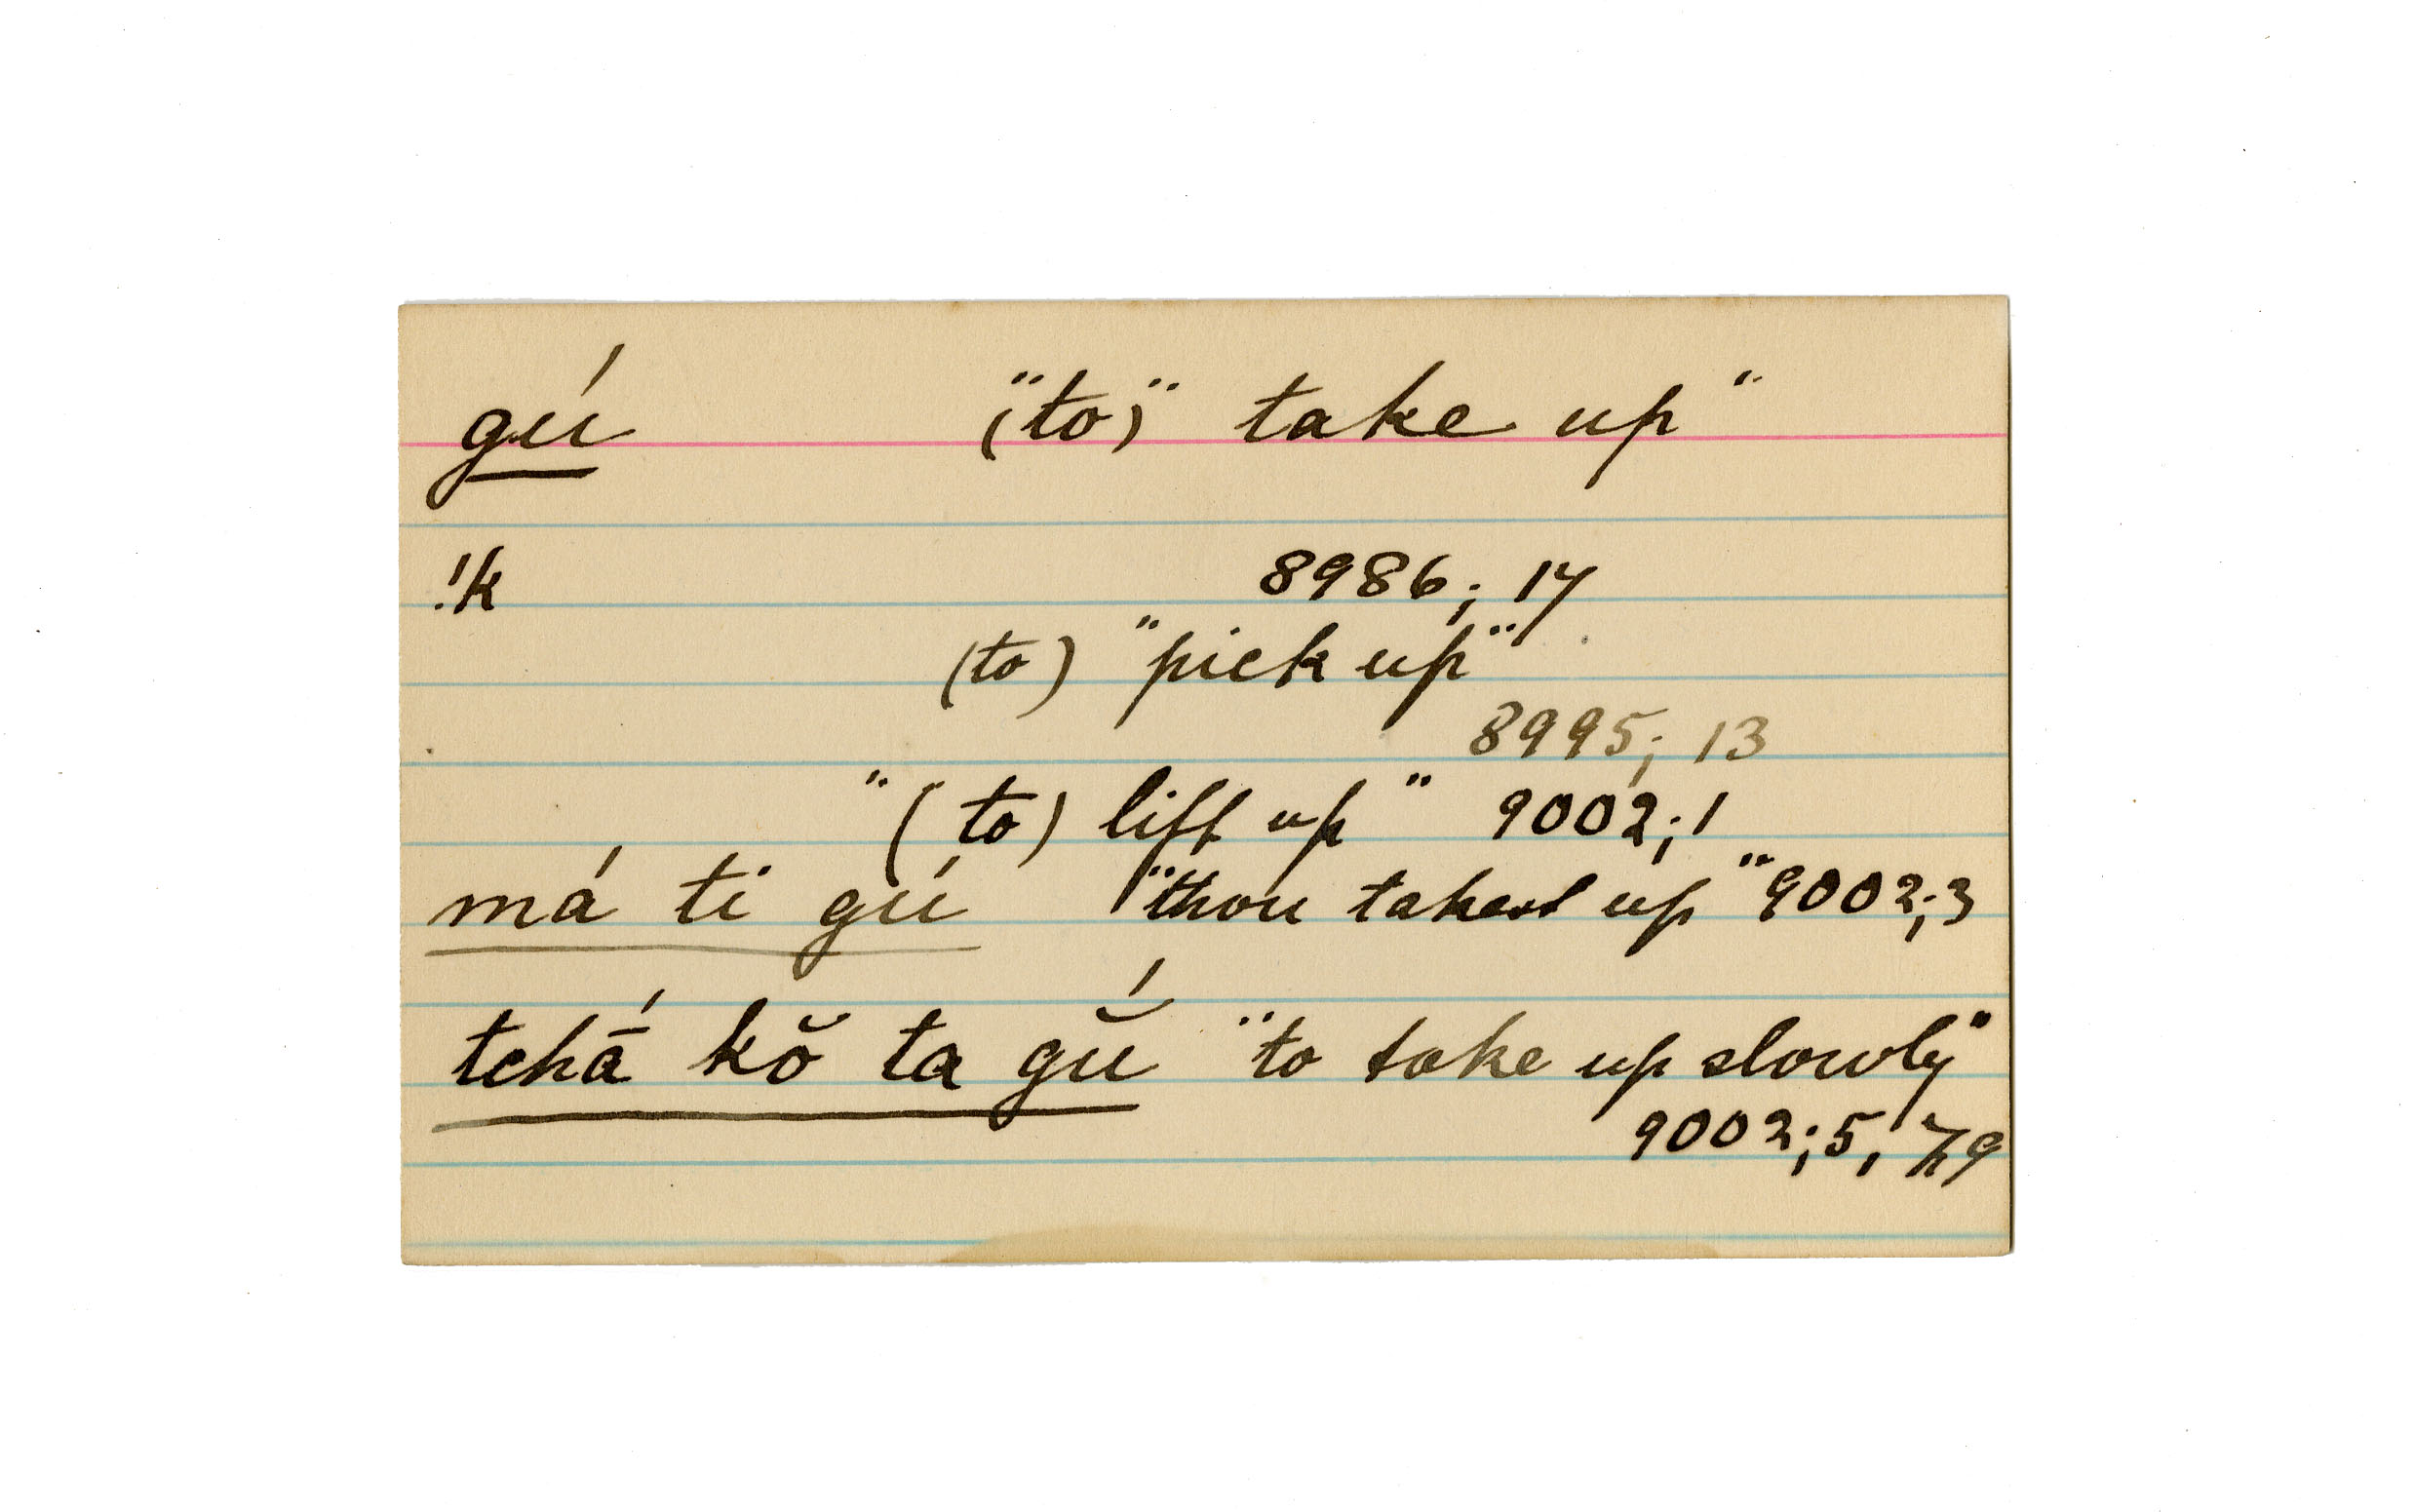 gú ("to)" take up"
!k 8986; 17
(to) "pick up"
8995; 13
"(to) lift up" 9002; 1
má ti gú "thou takest up" 9002; 3
tchā́ kŏ ta gŭ́ "to take up slowly"
9002; 5, 7, 9